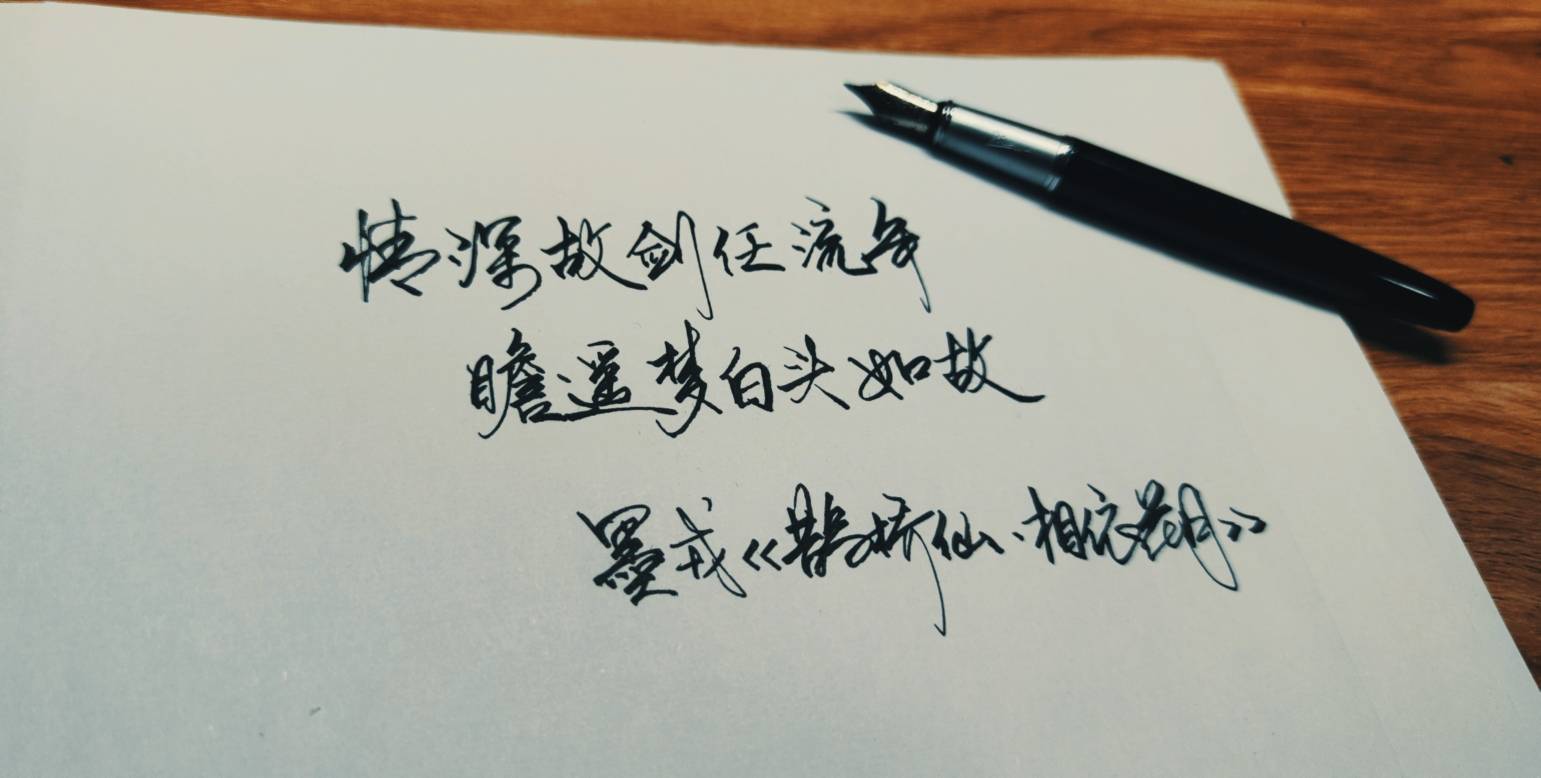 情深故剑任流年
瞻遥梦白头如故
墨戎《鹊桥仙·相依岁月》